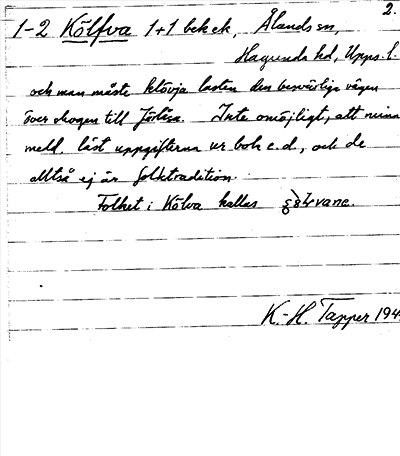 2.
1-2 Kölfva 1+1 bek ek, Ålands sn,
Hagunda hd, Upps. l.
och man måste klövja lasten den besvärliga vägen
över skogen till Järlåsa. Inte omöjligt, att mina
medd. läst uppgifterna ur bok e.d., och de
alltså ej är folktradition.
Folket i Kölva kallas
K.-H. Tapper 194